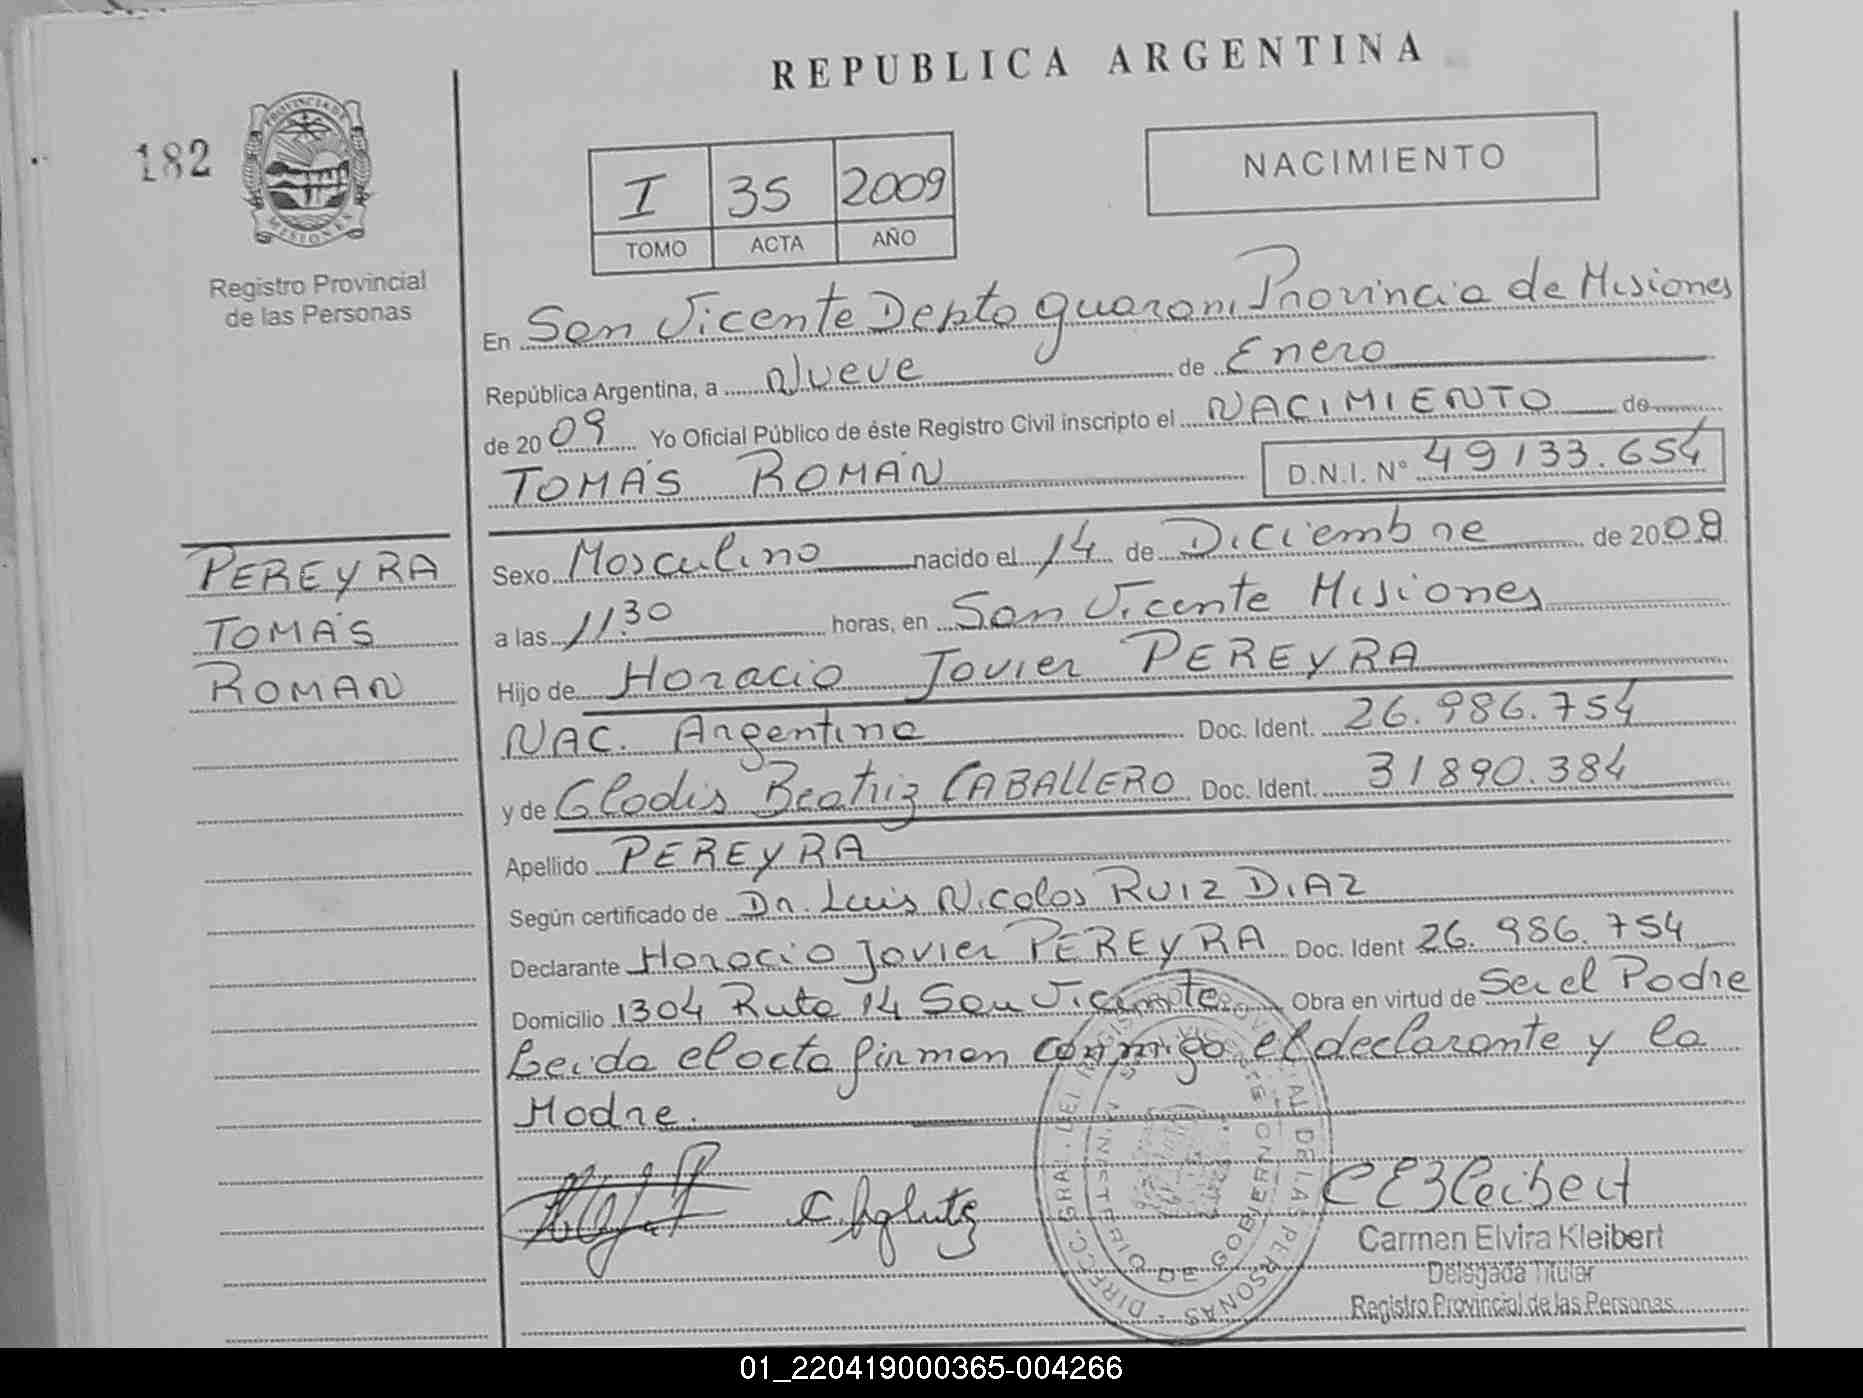 REPUBLICA ARGENTINA
182
PROVINCIA DE
MISIONES
Registro Provincial
de las Personas
I 35 2009
TOMO ACTA AÑO
NACIMIENTO
En San Vicente Depto guarani Provincia de Misiones
República Argentina, a Nueve de Enero
de 2009 Yo Oficial Público de éste Registro Civil inscripto el NACIMIENTO de
TOMÁS ROMÁN D.N.I. Nº 49133.654
PEREYRA
TOMÁS
ROMAN
Sexo Masculino nacido el 14 de Diciembre de 2008
a las 11:30 horas, en San Vicente Misiones
Hijo de Horacio Javier PEREYRA
NAC. Argentina Doc. Ident. 26.986.754
y de Gladis Beatriz CABALLERO Doc. Ident. 31890.384
Apellido PEREYRA
Según certificado de Dr. Luis Nicolas RUIZ DIAZ
Declarante Horacio Javier PEREYRA Doc. Ident 26.986.754
Domicilio 1304 Ruta 14 San Vicente Obra en virtud de Ser el Padre
Leida el acta firman conmigo el declarante y la
Madre.
DIRECC. GRAL. DEL REGISTRO PROVINCIAL DE LAS PERSONAS
MINISTERIO DE GOBIERNO
SAN VICENTE
CEKleibert
Carmen Elvira Kleibert
Delegada Titular
Registro Provincial de las Personas
01_220419000365-004266